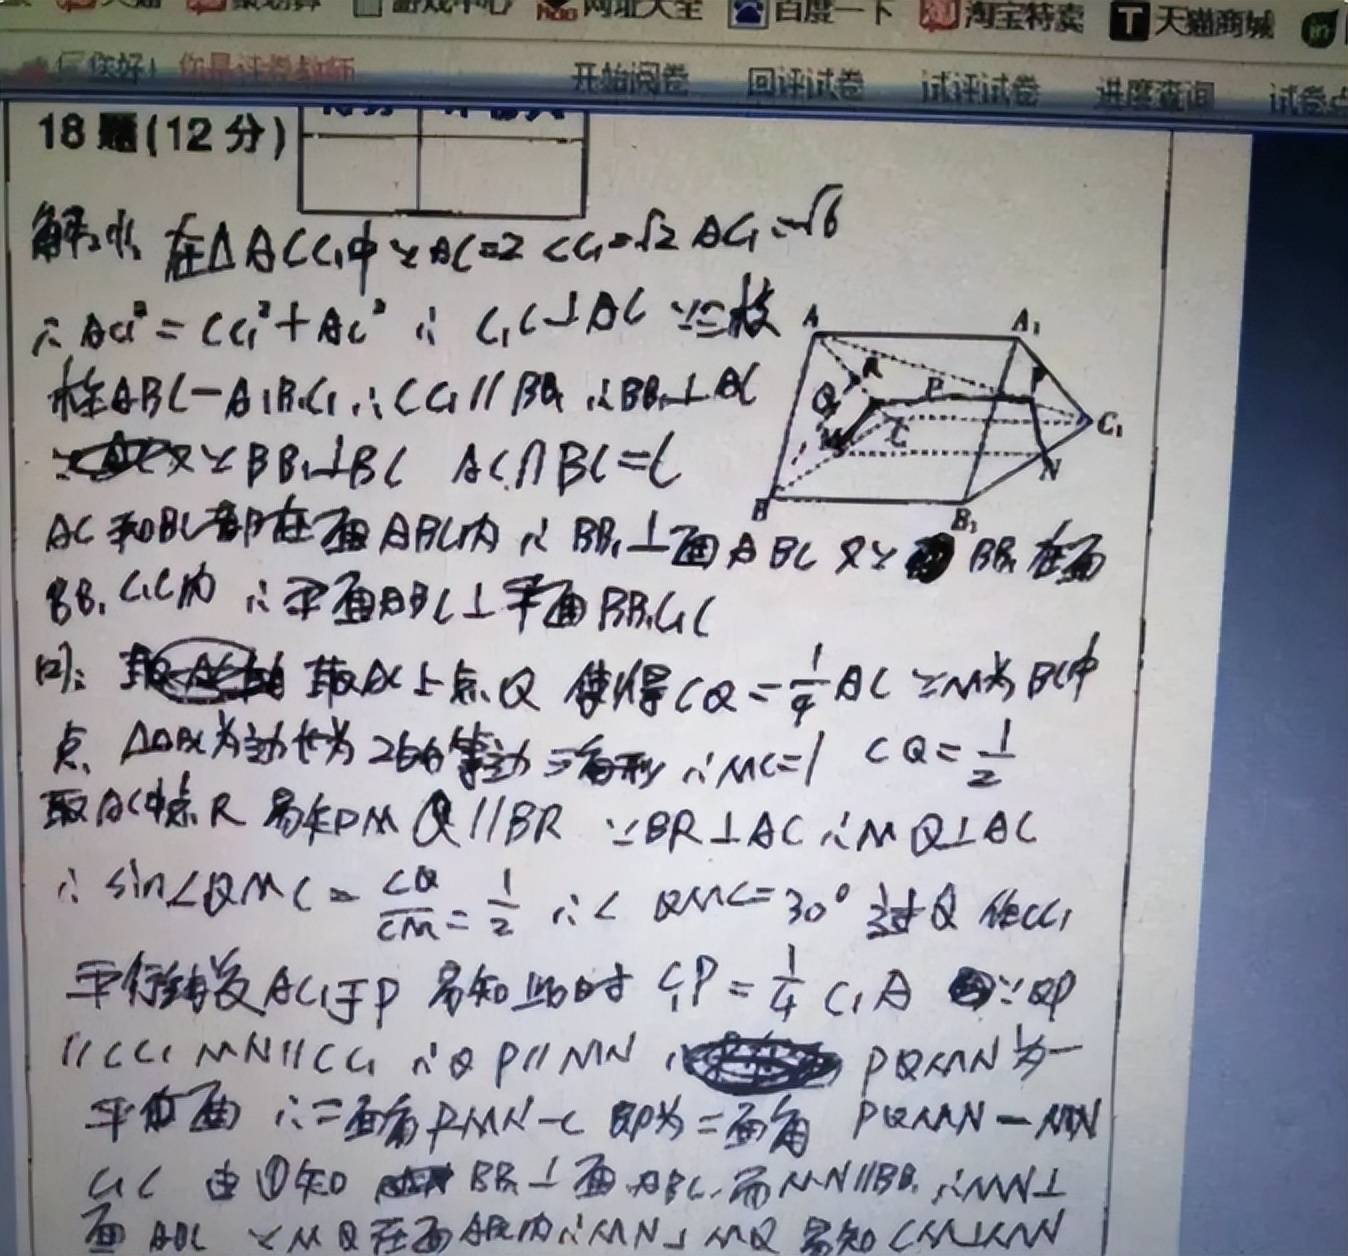 网址大全 百度一下 淘宝特卖 天猫商城
您好! 你是评卷教师
开始阅卷 回评试卷 试评试卷 进度查询
18题(12分)
在△ACC₁中∵AC=2 CC₁=√2 AC₁=√6
∴AC₁²=CC₁²+AC² ∴ C₁C⊥AC ∵三棱
柱ABC-A₁B₁C₁∴CC₁//BB₁∴BB₁⊥AC
∵BB₁⊥BC AC∩BC=C
AC和BC都在面ABC内∴BB₁⊥面ABC 又∵ BB₁在面
BB₁C₁C内 ∴平面ABC⊥平面BB₁C₁C
A A₁
R
Q P P
M C C₁
N
B B₁
取AC上点Q 使得CQ=1/4AC ∵M为BC中
点 △ABC为边长为2的等边三角形∴MC=1 CQ=1/2
取AC中点R 易知 MQ//BR ∵BR⊥AC∴MQ⊥AC
∴sin∠QMC=CQ/CM=1/2 ∴∠QMC=30° 过Q作CC₁
平行线交AC₁于P 易知此时 C₁P=1/4C₁A ∵QP
//CC₁ MN//CC₁ ∴QP//MN PQMN为一
平面 ∴二面角PMN-C 即为二面角 PQMN-MN
C₁C 由①知 BB₁⊥面ABC 而MN//BB₁∴MN⊥
面ABC ∵MQ在面ABC内∴MN⊥MQ 易知CM⊥MN